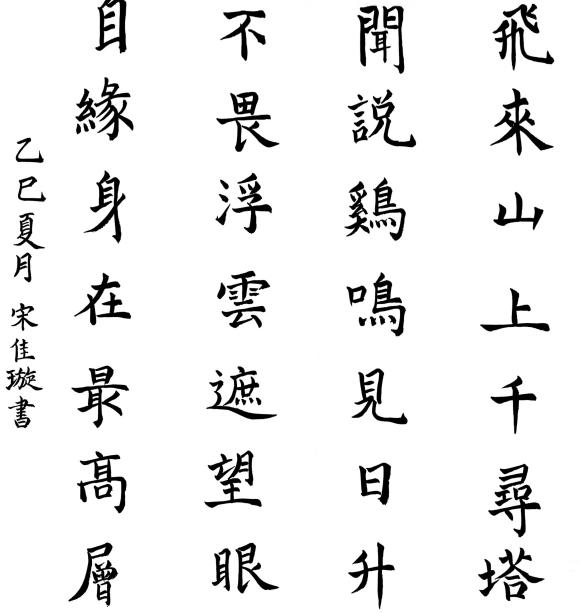 飛來山上千尋塔
聞説鷄鳴見日升
不畏浮雲遮望眼
自緣身在最高層
乙巳夏月 宋佳璇書